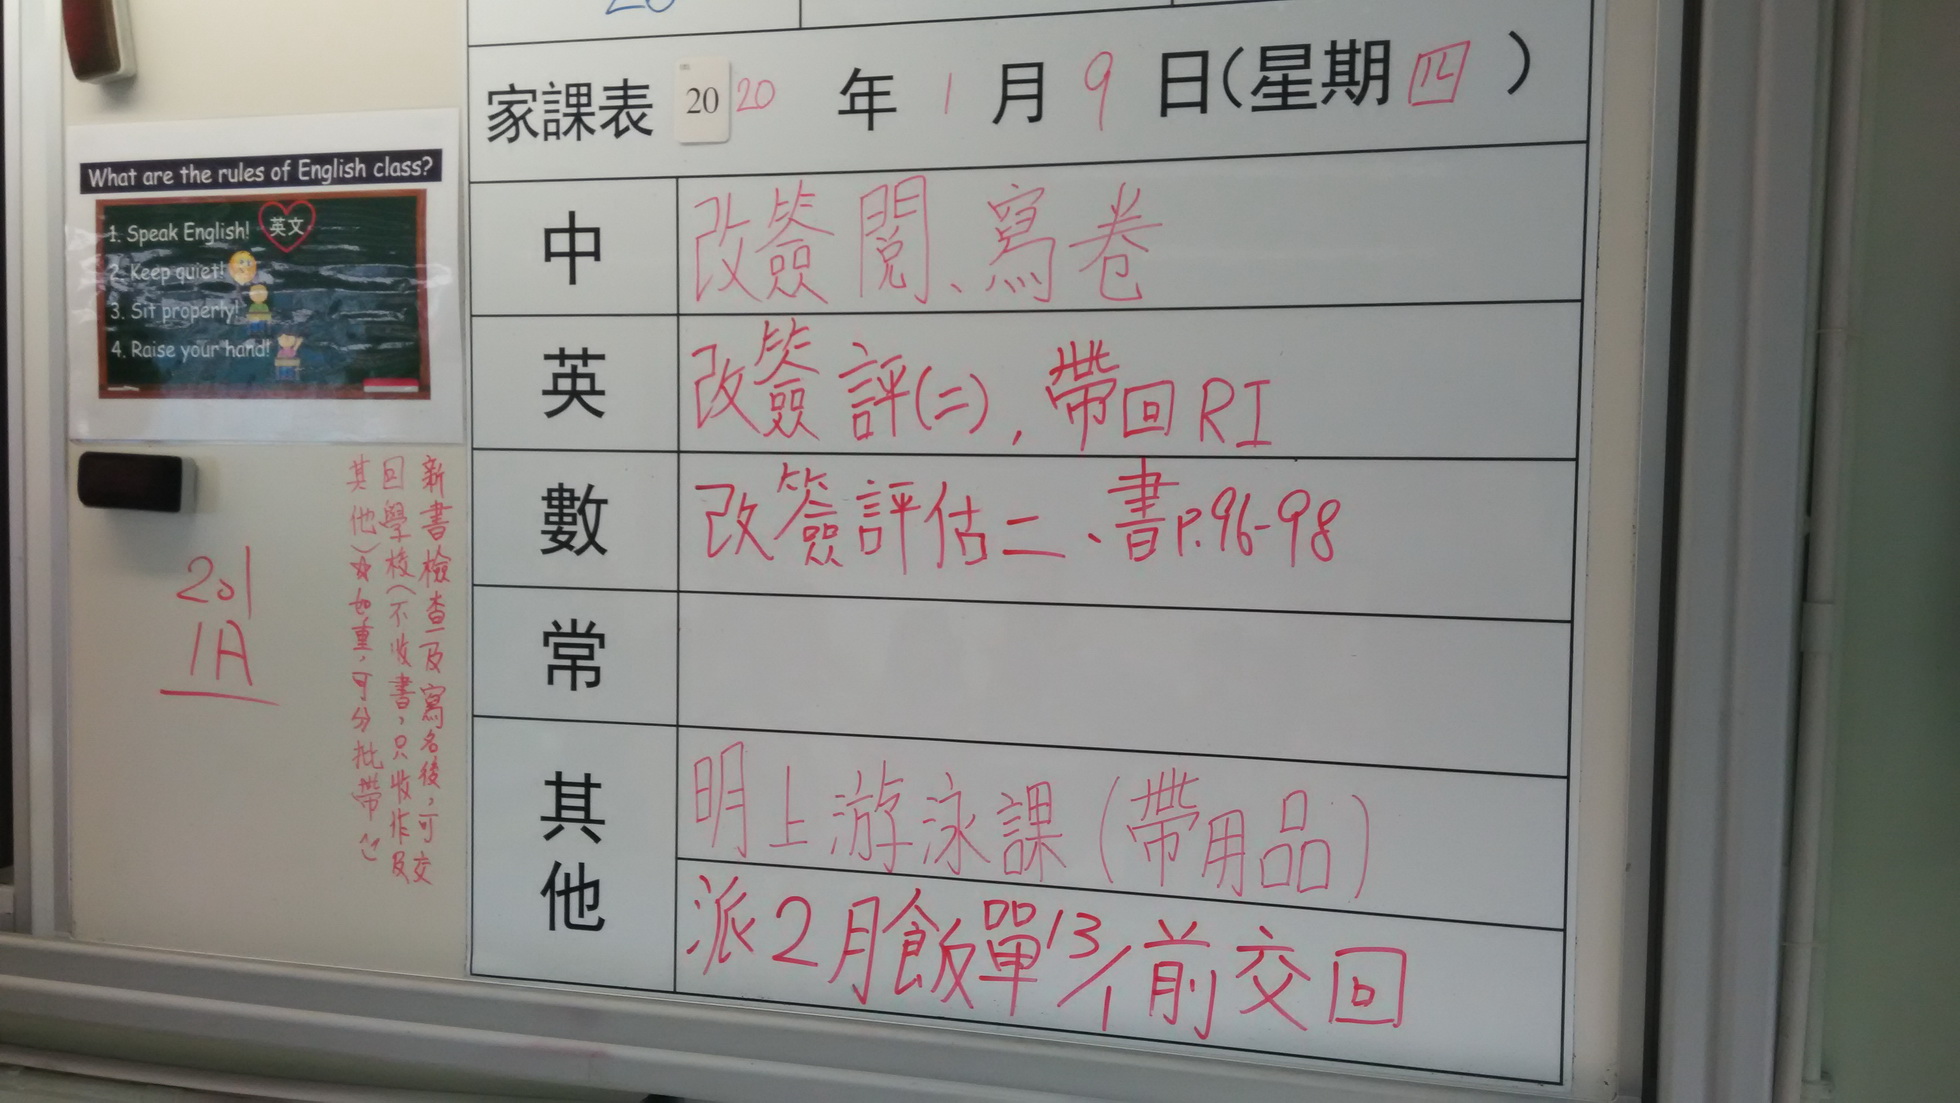 家課表 2020 年 1 月 9 日(星期四)
中 改簽閱、寫卷
英 改簽評(二), 帶回RI
數 改簽評估二、書P.96-98
常
其他 明上游泳課(帶用品)
派2月飯單13/1前交回
What are the rules of English class?
1. Speak English! 英文
2. Keep quiet!
3. Sit properly!
4. Raise your hand!
新書檢查及寫名後,可交
回學校(不收書,只收作及
其他)☆如重,可分批帶
201
1A